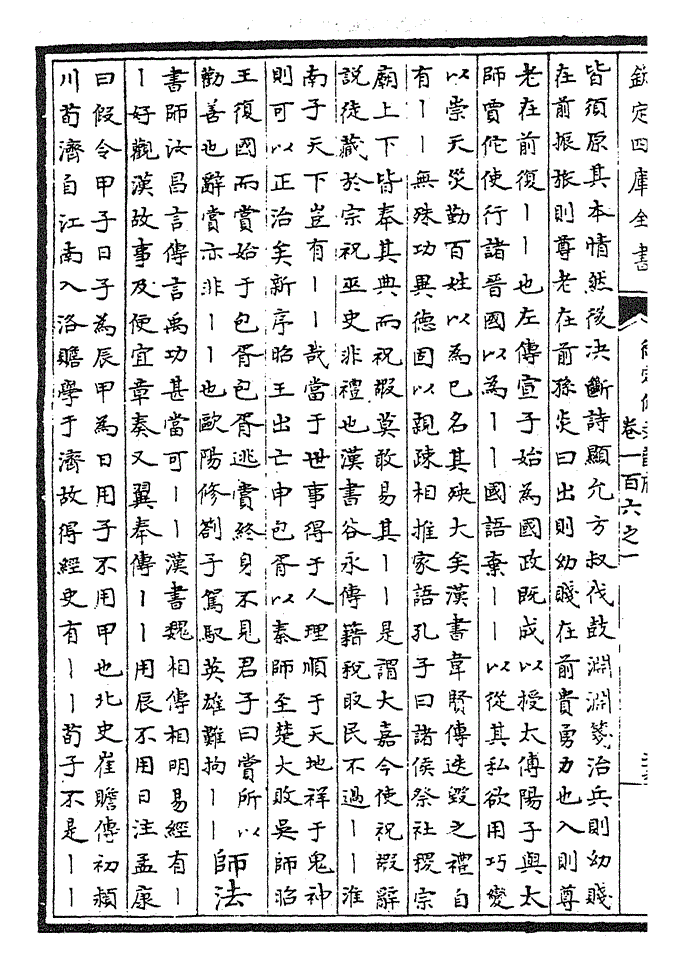 欽定四庫全書
卷一百六之一
皆須原其本情然後決斷詩顯允方叔伐鼓淵淵箋治兵則幼賤
在前振旅則尊老在前孫炎曰出則幼賤在前貴勇力也入則尊
老在前復丨丨也左傳宣子始為國政既成以授太傅陽子與太
師賈佗使行諸晉國以為丨丨國語棄丨丨以從其私欲用巧變
以崇天災勤百姓以為己名其殃大矣漢書韋賢傳迭毀之禮自
有丨丨無殊功異德固以親疎相推家語孔子曰諸侯祭社稷宗
廟上下皆奉其典而祝嘏莫敢易其丨丨是謂大嘉今使祝嘏辭
説徒藏於宗祝巫史非禮也漢書谷永傳藉稅取民不過丨丨淮
南子天下豈有丨丨哉當于世事得于人理順于天地祥于鬼神
則可以正治矣新序昭王出亡申包胥以秦師至楚大敗吳師昭
王復國而賞始于包胥包胥逃賞終身不見君子曰賞所以
勸善也辭賞亦非丨丨也歐陽修劄子駕馭英雄難拘丨丨
師法
書師汝昌言傳言禹功甚當可丨丨漢書魏相傳相明易經有丨
丨好觀漢故事及便宜章奏又翼奉傳丨丨用辰不用日注孟康
曰假令甲子日子為辰甲為日用子不用甲也北史崔贍傳初潁
川荀濟自江南入洛贍學于濟故得經史有丨丨荀子不是丨丨